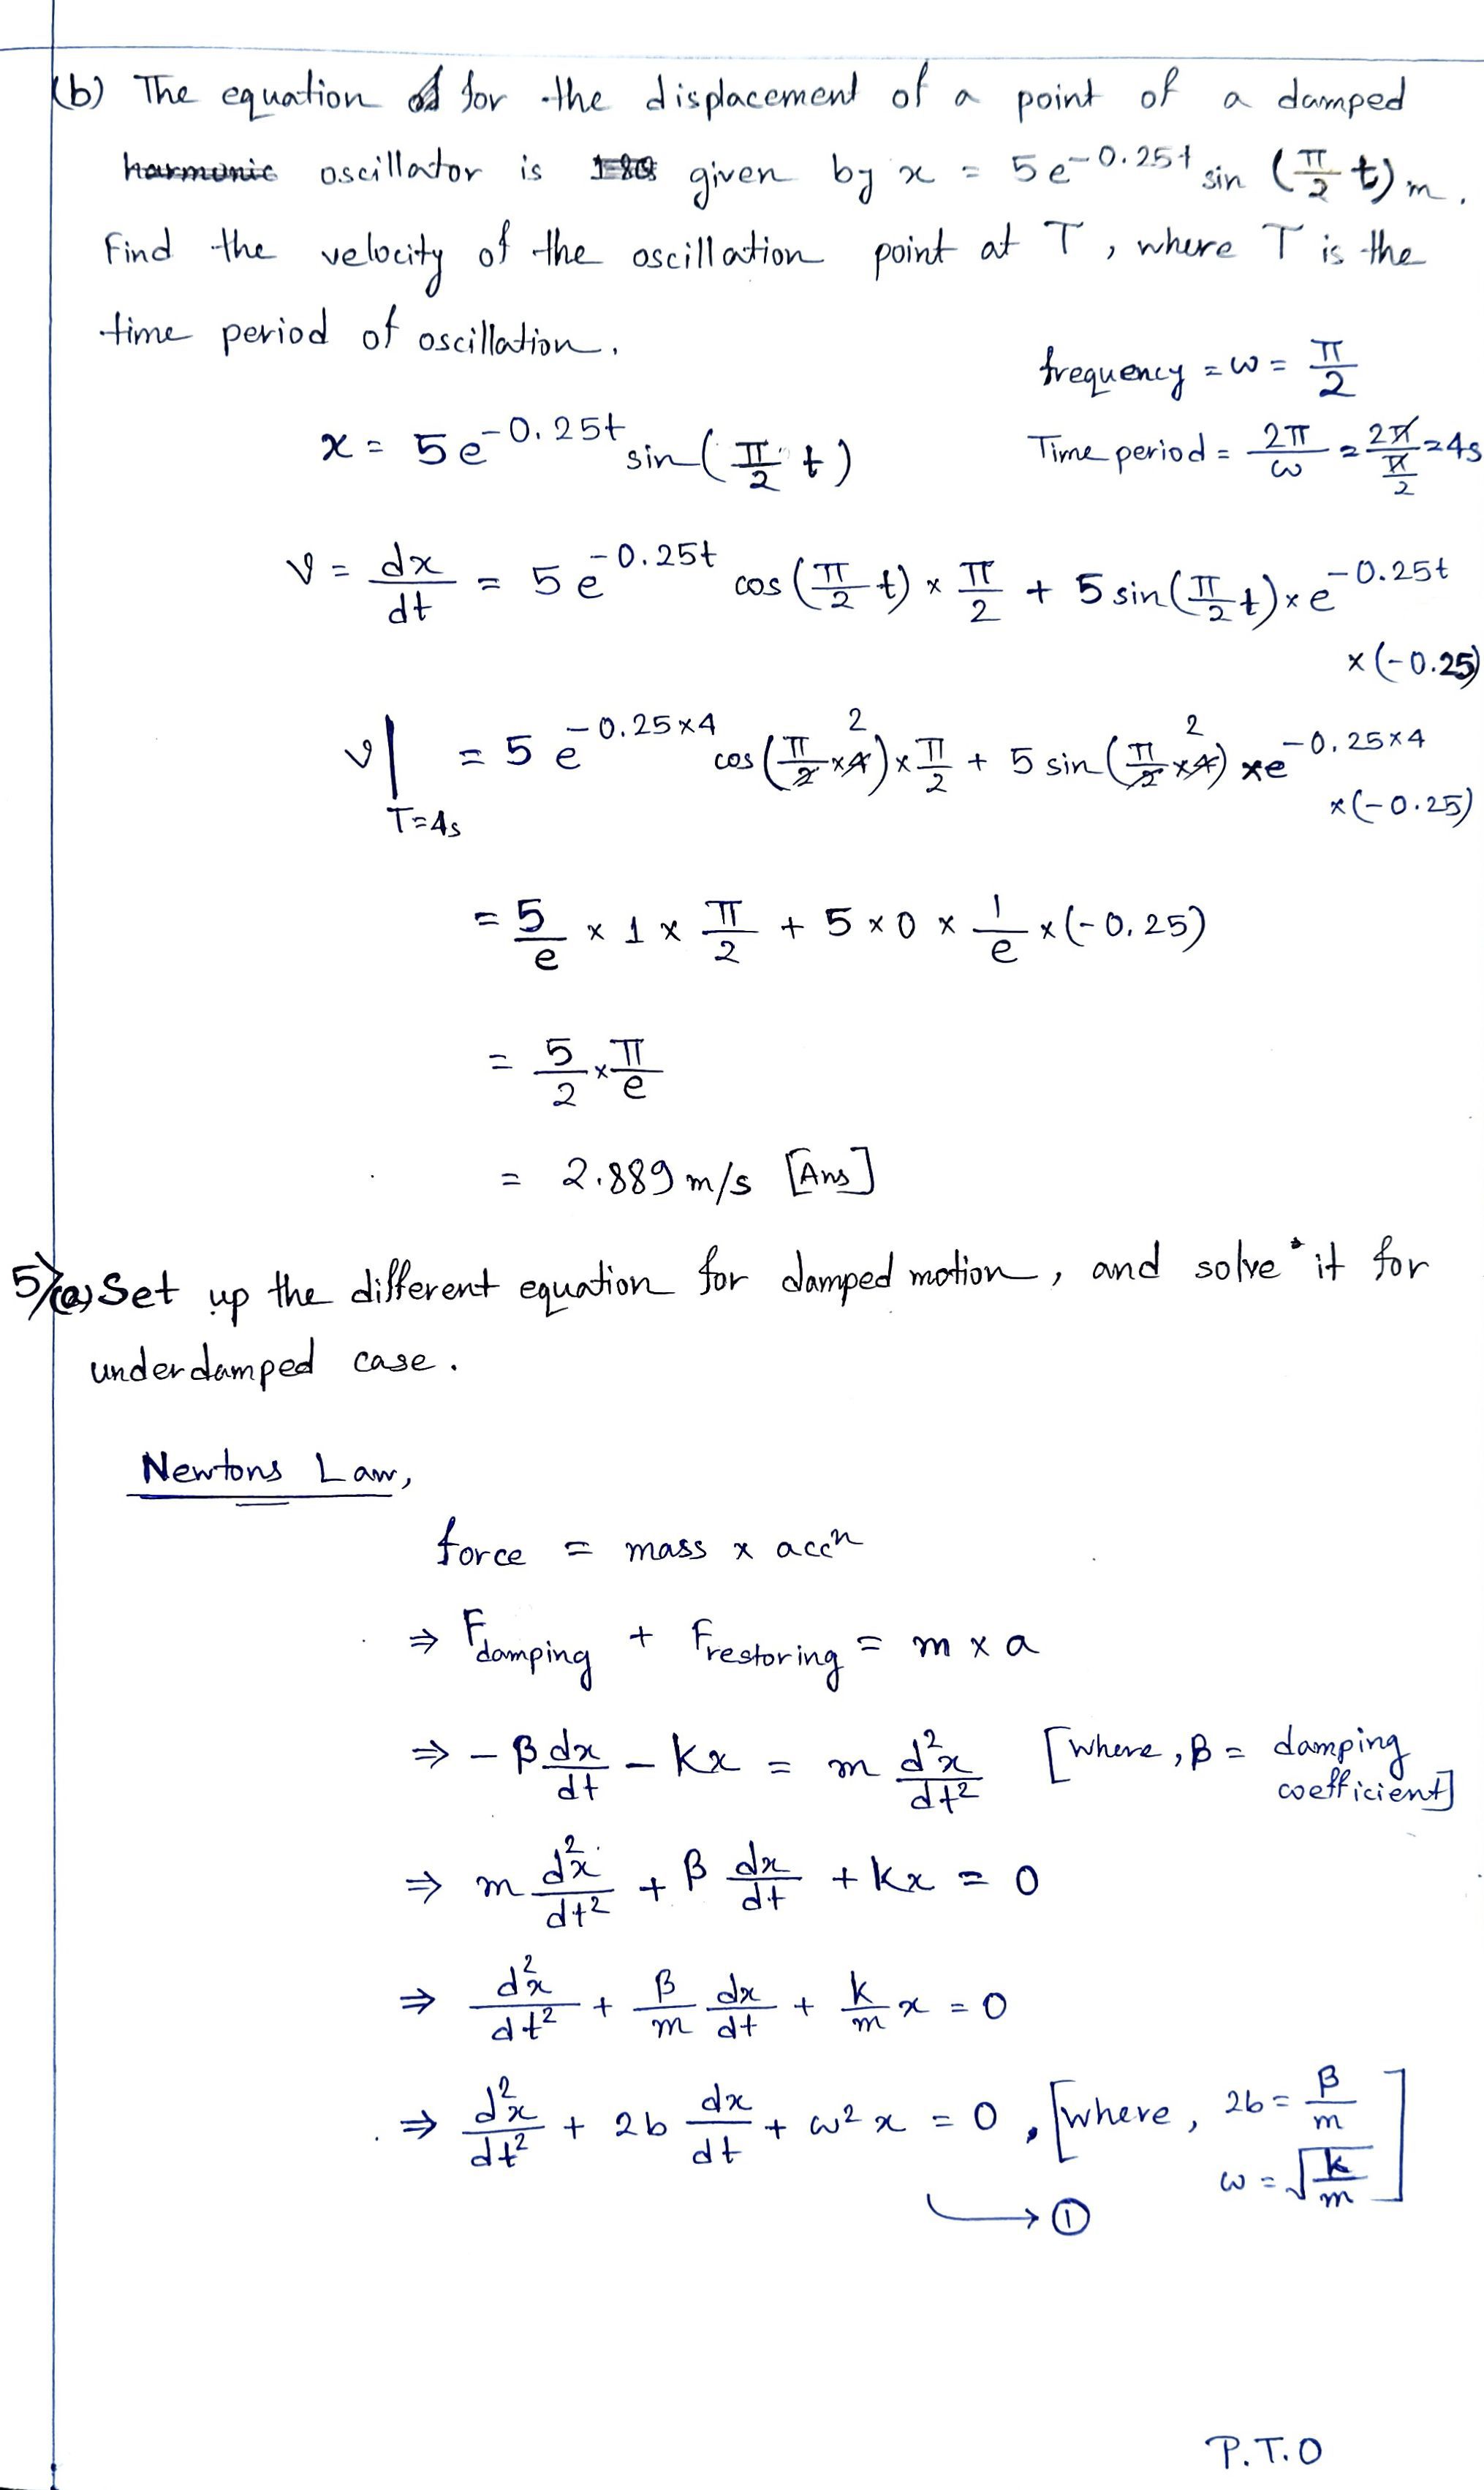 (b) The equation for the displacement of a point of a damped
harmonic oscillator is given by x = 5e^-0.25t sin (π/2 t) m.
Find the velocity of the oscillation point at T, where T is the
time period of oscillation.
frequency = ω = π/2
x = 5e^-0.25t sin(π/2 t)
Time period = 2π/ω = 2π/(π/2) = 4s
v = dx/dt = 5e^-0.25t cos(π/2 t) × π/2 + 5 sin(π/2 t) × e^-0.25t
×(-0.25)
v|T=4s = 5 e^-0.25×4 cos(π/2 ×4 2) × π/2 + 5 sin(π/2 ×4 2) ×e^-0.25×4
×(-0.25)
= 5/e × 1 × π/2 + 5 × 0 × 1/e ×(-0.25)
= 5/2 × π/e
= 2.889 m/s [Ans]
5)(a) Set up the different equation for damped motion, and solve it for
underdamped case.
Newtons Law,
force = mass × accn
⇒ Fdamping + Frestoring = m × a
⇒ - β dx/dt - kx = m d²x/dt² [where, β = damping
coefficient]
⇒ m d²x/dt² + β dx/dt + kx = 0
⇒ d²x/dt² + β/m dx/dt + k/m x = 0
⇒ d²x/dt² + 2b dx/dt + ω² x = 0, [where, 2b = β/m
ω = √k/m]
→ ①
P.T.O